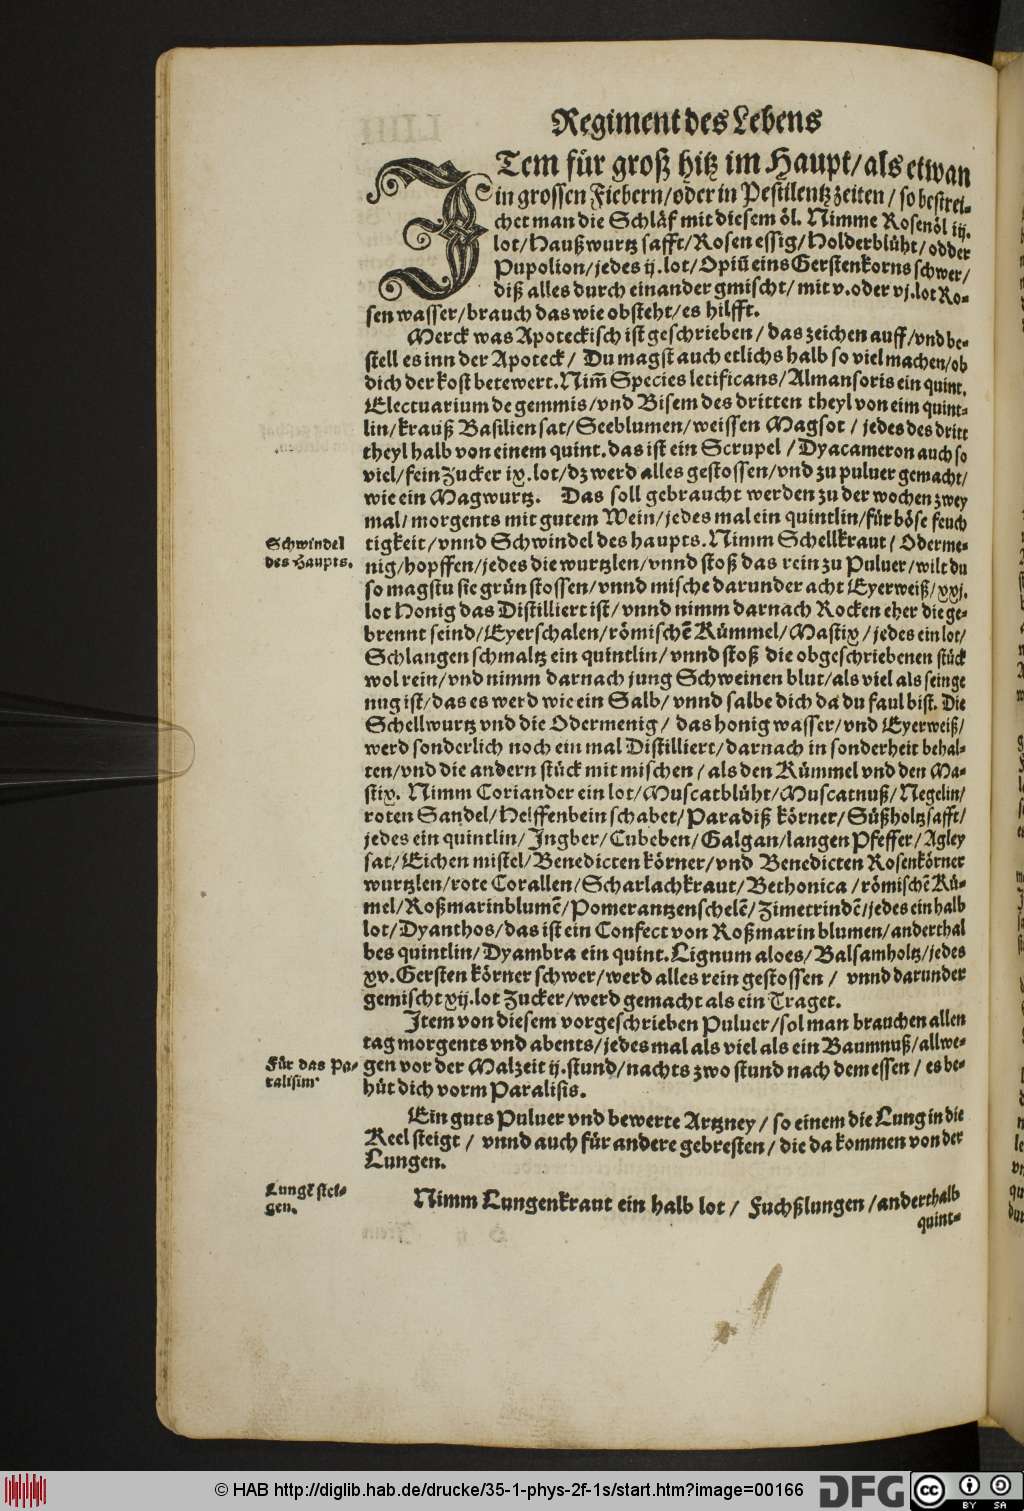 Regiment des Lebens
ITem für groß hitz im Haupt/als etwan
in grossen Fiebern/oder in Pestilentz zeiten/so bestrei-
chet man die Schläf mit diesem öl. Nimme Rosenöl iij.
lot/Haußwurtz safft/Rosen essig/Holderblüht/odder
Pupolion/jedes ij.lot/Opiū eins Gerstenkorns schwer/
diß alles durch einander gmischt/mit v.oder vj.lot Ro-
sen wasser/brauch das wie obsteht/es hilfft.
Merck was Apoteckisch ist geschrieben/das zeichen auff/vnd be-
stell es inn der Apoteck/ Du magst auch etlichs halb so viel machen/ob
dich der kost betewert. Nim̄ Species letificans/Almansoris ein quint.
Electuarium de gemmis/vnd Bisem des dritten theyl von eim quint-
lin/krauß Basilien sat/Seeblumen/weissen Magsot/ jedes des dritt
theyl halb von einem quint.das ist ein Scrupel/Dyacameron auch so
viel/fein Zucker ix.lot/dz werd alles gestossen/vnd zu puluer gemacht/
wie ein Magwurtz. Das soll gebraucht werden zu der wochen zwey
mal/morgents mit gutem Wein/jedes mal ein quintlin/für böse feuch
Schwindel
des Haupts.
tigkeit/vnnd Schwindel des haupts. Nimm Schellkraut/Oderme-
nig/hopffen/jedes die wurtzlen/vnnd stoß das rein zu Puluer/wilt du
so magstu sie grün stossen/vnnd mische darunder acht Eyerweiß/xxj.
lot Honig das Distilliert ist/vnnd nimm darnach Rocken eher die ge-
brennt seind/Eyerschalen/römischē Kümmel/Mastix/jedes ein lot/
Schlangen schmaltz ein quintlin/vnnd stoß die obgeschriebenen stück
wol rein/vnd nimm darnach jung Schweinen blut/als viel als sein ge
nug ist/das es werd wie ein Salb/vnnd salbe dich da du faul bist. Die
Schellwurtz vnd die Odermenig/ das honig wasser/vnd Eyerweiß/
werd sonderlich noch ein mal Distilliert/darnach in sonderheit behal-
ten/vnd die andern stück mit mischen/als den Kümmel vnd den Ma-
stix. Nimm Coriander ein lot/Muscatblüht/Muscatnuß/Negelin/
roten Sandel/Helffenbein schabet/Paradiß körner/Süßholtz safft/
jedes ein quintlin/Jngber/Cubeben/Galgan/langen Pfeffer/Agley
sat/Eichen mistel/Benedicten körner/vnd Benedicten Rosenkörner
wurtzlen/rote Corallen/Scharlachkraut/Bethonica/römischē Kü-
mel/Roßmarinblumē/Pomerantzenschelē/Zimetrindē/jedes ein halb
lot/Dyanthos/das ist ein Confect von Roßmarin blumen/anderthal
bes quintlin/Dyambra ein quint.Lignum aloes/Balsamholtz/jedes
xv.Gersten körner schwer/werd alles rein gestossen/ vnnd darunder
gemischt xij.lot Zucker/werd gemacht als ein Traget.
Item von diesem vorgeschrieben Puluer/sol man brauchen allen
tag morgents vnd abents/jedes mal als viel als ein Baumnuß/allwe-
Für das Pa-
ralisim
gen vor der Malzeit ij.stund/nachts zwo stund nach dem essen/es be-
hüt dich vorm Paralisis.
Ein guts Puluer vnd bewerte Artzney/so einem die Lung in die
Keel steigt/ vnnd auch für andere gebresten/die da kommen von der
Lungen.
Lungē stei-
gen.
Nimm Lungenkraut ein halb lot/ Fuchßlungen/anderthalb
quint-
© HAB http://diglib.hab.de/drucke/35-1-phys-2f-1s/start.htm?image=00166
DFG
cc
BY SA